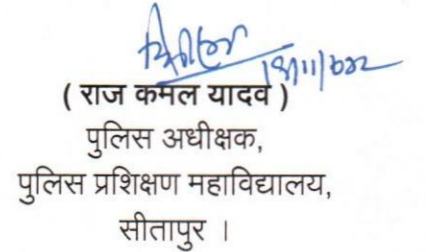 ( राज कमल यादव )
पुलिस अधीक्षक,
पुलिस प्रशिक्षण महाविद्यालय,
सीतापुर ।